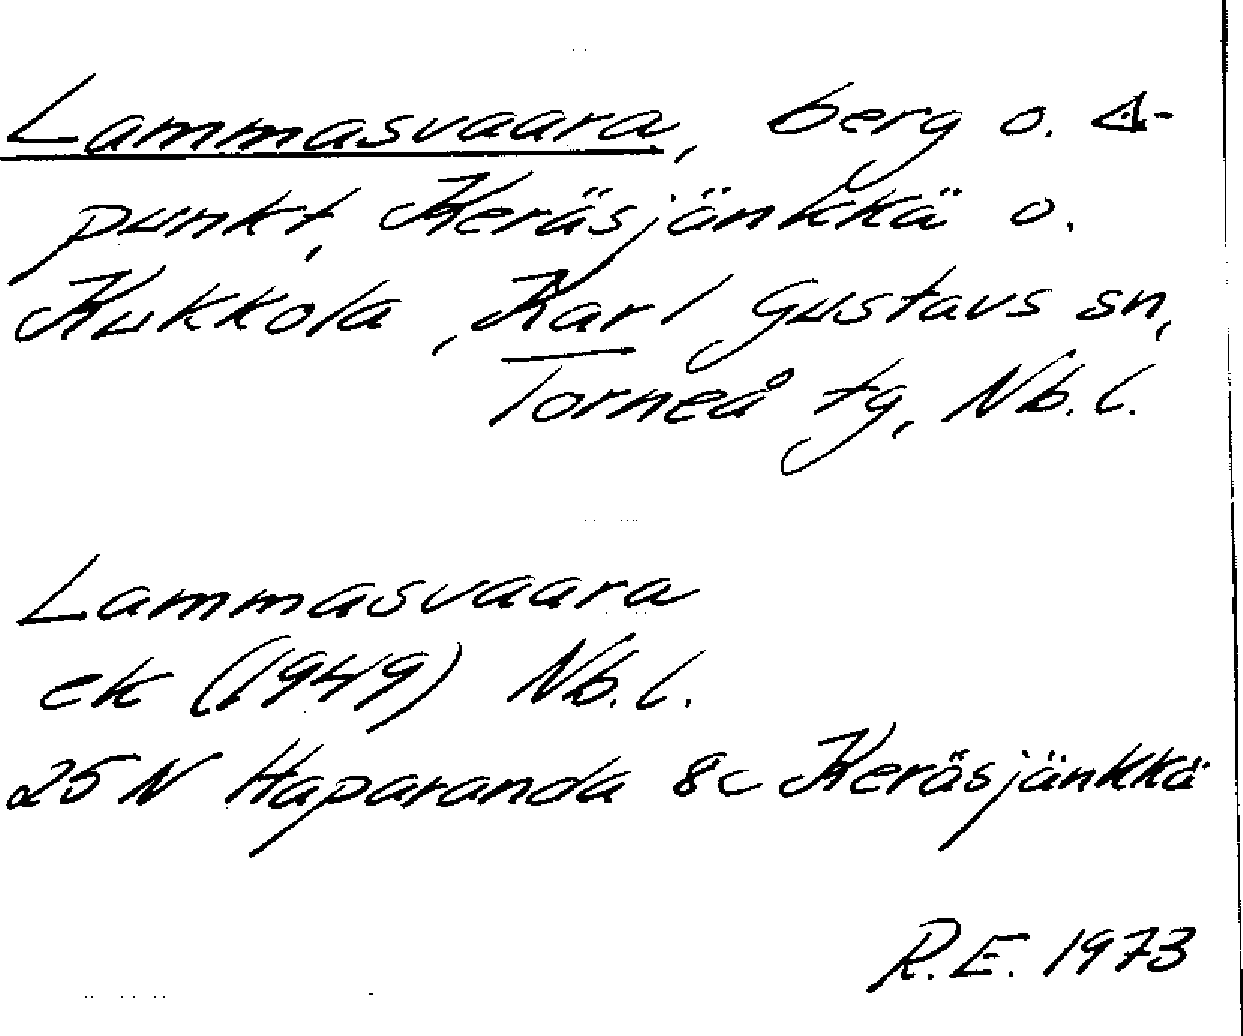 Lammasvaara, berg o. Δ-
punkt, Keräsjänkkä o.
Kukkola, Karl Gustavs sn,
Torneå tg, Nb. l.
Lammasvaara
ek (1949) Nb. l.
25 N Haparanda 8c Keräsjänkkä
R.E. 1973